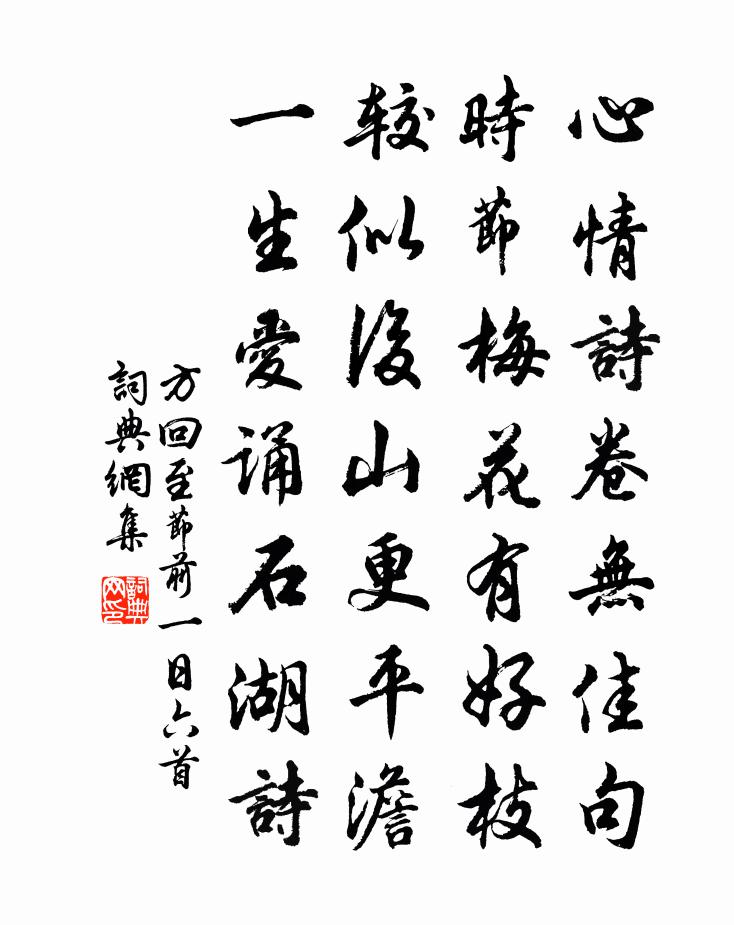 心情詩卷無佳句
時節梅花有好枝
較似後山更平澹
一生愛誦石湖詩
方回至節前一日六首
詞典網集
詞典網印